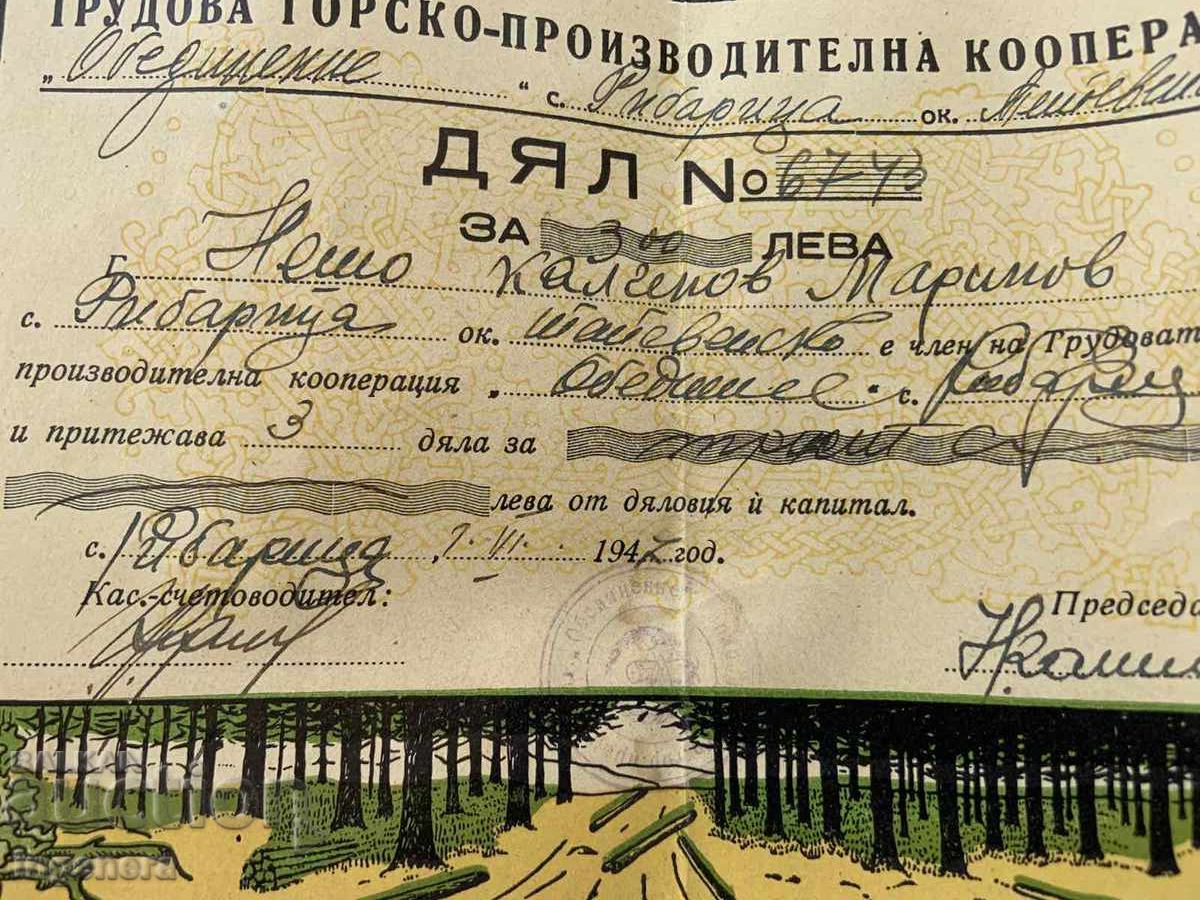 ТРУДОВА ГОРСКО-ПРОИЗВОДИТЕЛНА КООПЕРА
„Обединение“ с. Рибарица ок.
ДЯЛ № 6743
ЗА 300 ЛЕВА
Г. Нешо Калчинов Маринов
с. Рибарица ок. Тетевенско е член на Трудоват
производителна кооперация „Обединение“ с. Рибариц
и притежава 3 дяла за триста
лева от дяловия ѝ капитал.
с. Рибарица, VII 1947 год.
Кас.-счетоводител: Председа
BALKAN
auctio
inzenera